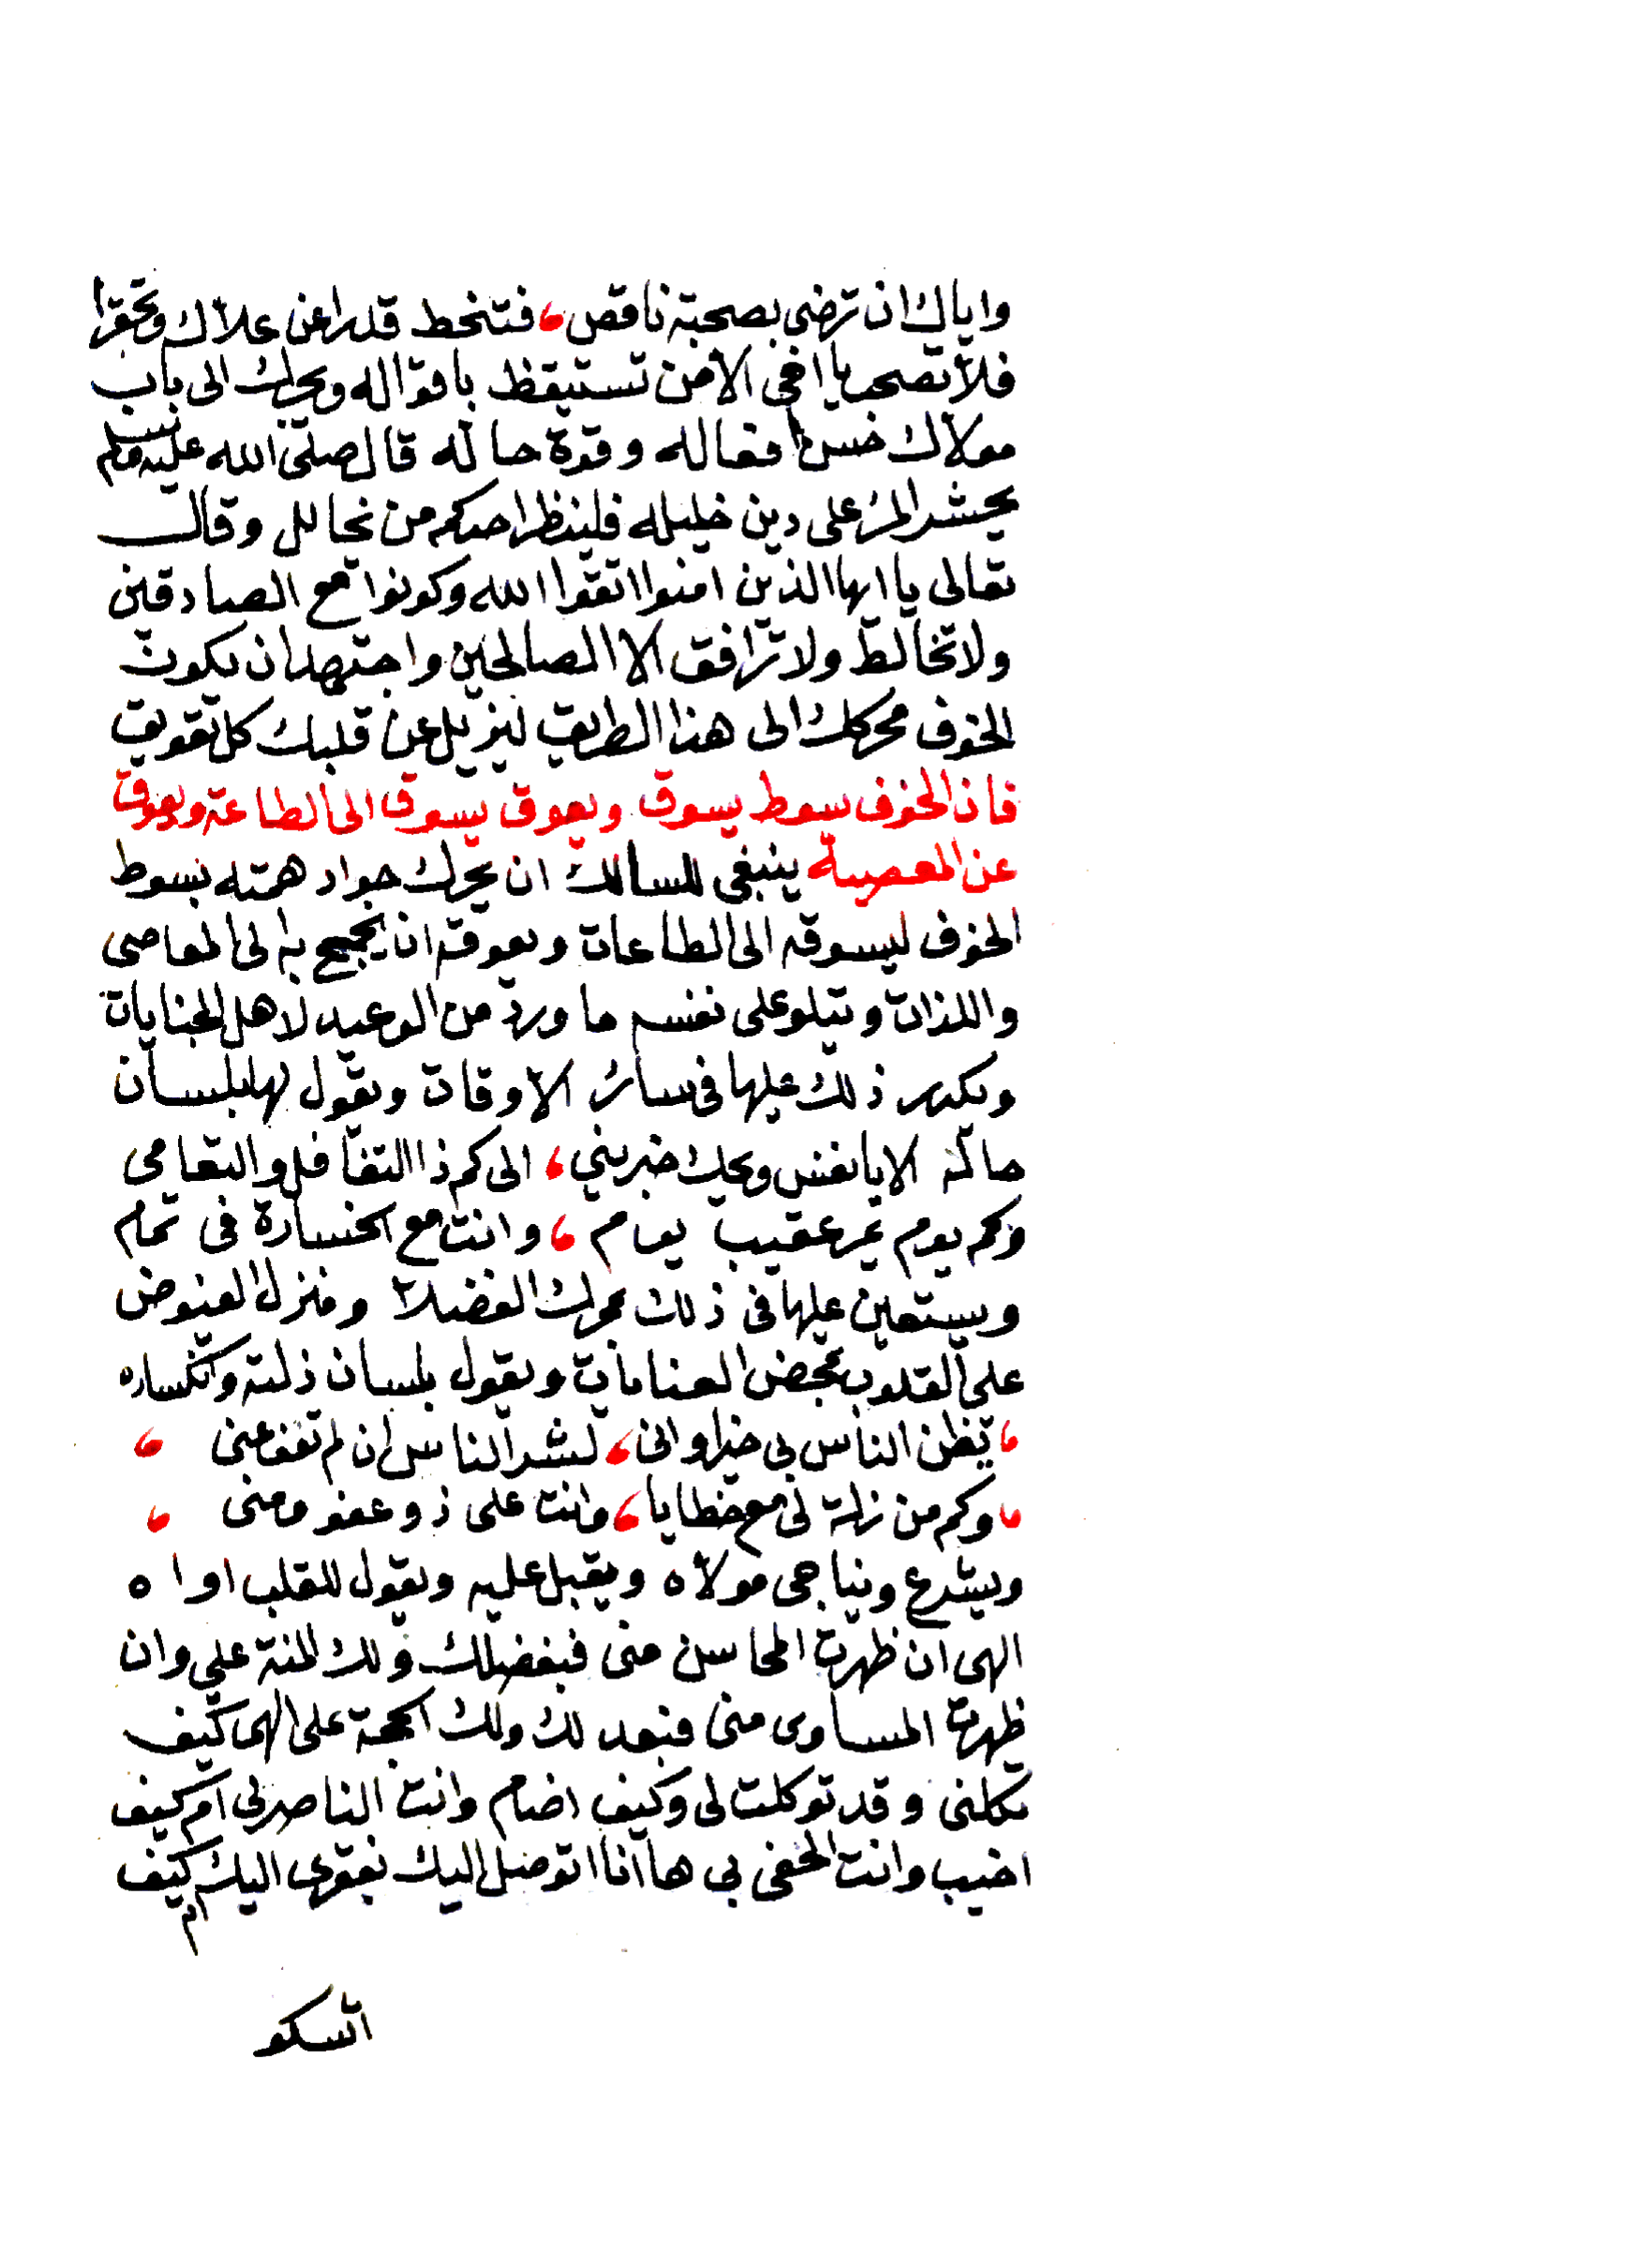 واياك ان ترضى بصحبة ناقص، فتنحط قدرا عن علاك وتحقرا
فلا تصحب يا اخي الا من تستيقظ باقواله ويحرك الى باب
مولاك حسن افعاله وقوة حاله قال صلى الله عليه وسلم
يحشر المرء على دين خليله فلينظر احدكم من يخالل وقال
تعالى يا ايها الذين امنوا اتقوا الله وكونوا مع الصادقين
ولا تخالط ولا ترافق الا الصالحين واجتهد ان يكون
الخوف محركك الى هذا الطريق ليزيل عن قلبك كل تعويق
فان الخوف سوط يسوق ويعوق يسوق الى الطاعة ويعوق
عن المعصية ينبغي للسالك ان يحرك جواد همته بسوط
الخوف ليسوقه الى الطاعات ويعوقه ان يجمح به الى المعاصى
واللذات ويتلو على نفسه ما ورد من الوعيد لاهل الجنايات
ويكرر ذلك عليها فى سائر الاوقات ويقول لها بلسان
حاله الا يا نفس ويحك خبريني، الى كم ذا التغافل والتعامى
وكم يوم يمر عقيب يوم، وانت مع الخسارة فى تمام
ويستعين عليها فى ذلك بمحرك الفضلا ومنزل الفيوض
على القلوب بمحض العنايات ويقول بلسان ذلته وانكساره
، يظن الناس بى خيرا وانى، لشر الناس ان لم تعف عنى ،
، وكم من زلة لى مع خطايا، وانت على ذو عفو ومنى ،
ويتضرع ويناجى مولاه ويقبل عليه ويقول للقلب اواه
الهى ان ظهرت المحاسن منى فبفضلك ولك المنة على وان
ظهرت المساوى منى فبعدلك ولك الحجة على الهى كيف
تكلنى وقد توكلت لى وكيف اضام وانت الناصر لى ام كيف
اخيب وانت الحفى بى ها انا اتوصل اليك بفقرى اليك ام كيف
اشكو